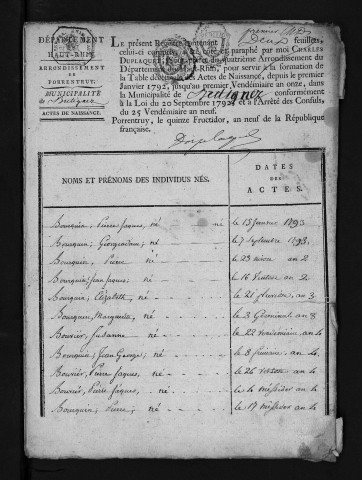 DÉPARTEMENT
DU
HAUT-RHIN.
ARRONDISSEMENT
DE
PORRENTRUY.
MUNICIPALITÉ
ACTES DE NAISSANCE.
premier
Deux feuillets,
Le présent Registre contenant
celui-ci compris, a été coté et paraphé par moi CHARLES
DUPLAQUET, du quatrième Arrondissement du
Département du Haut-Rhin, pour servir à la formation de
la Table décennale des Actes de Naissance, depuis le premier
Janvier 1792, jusqu'au premier Vendémiaire an onze, dans
la Municipalité de conformément
à la Loi du 20 Septembre 1792, et à l'Arrêté des Consuls
du 25 Vendémiaire an neuf.
Porrentruy, le quinze Fructidor, an neuf de la République
française.
Duplaquet
NOMS ET PRÉNOMS DES INDIVIDUS NÉS.
DATES
DES
ACTES.
Bourquin, Pierre Jaques, né né le 13 Janvier 1793
Bourquin, né le 7 Septembre 1793
Bourquin, Pierre né le 23 nivose an 2
Bourquin, Jean Jaques; né le 16 Ventose an 2
Bourquin, Elizabeth né le 21 an 3
Bourquin, Marguerite, né le 3 Germinal an 3
Bouvier, Susanne né le 22 Vendemiaire an 4
Bourquin, Jean George; né le 3 frimaire an 4
Bouvier, Pierre Jaques, né le 26 Ventose an 4
Bouvier, Pierre Jaques, né le 4 Messidor an 4
Bourquin, Pierre, né le 17 Messidor an 4